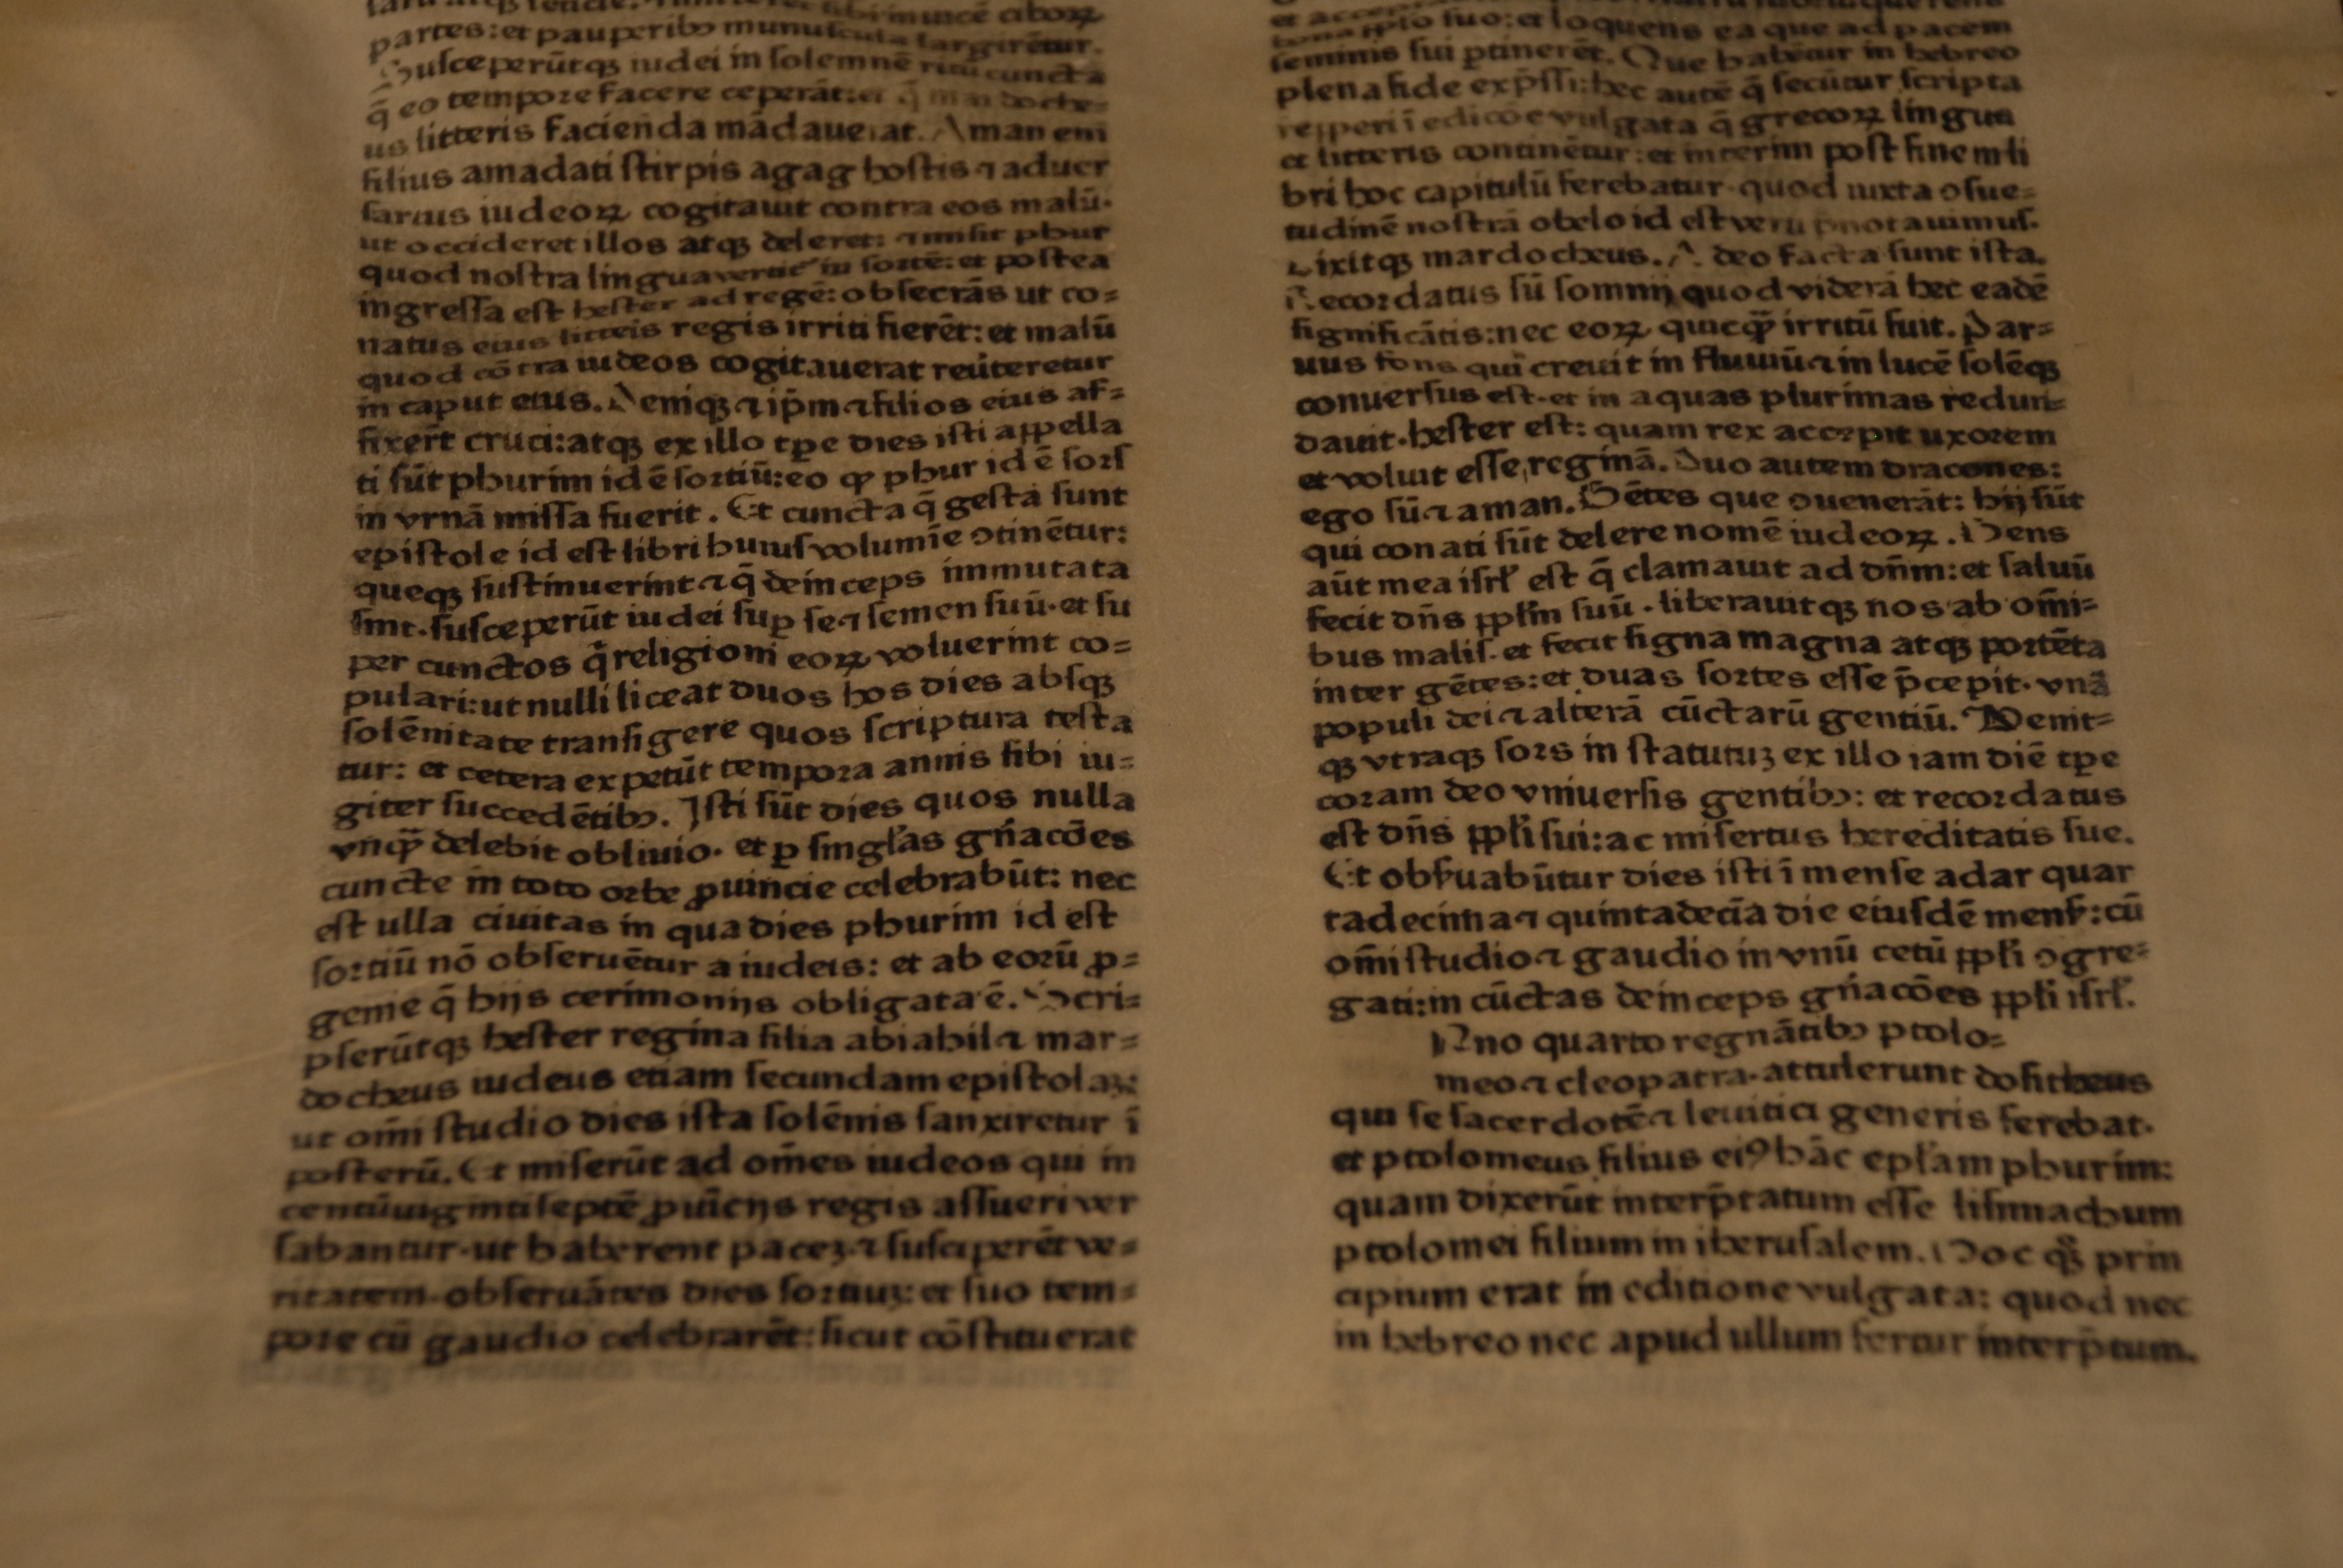 partes: et pauperibꝰ munuſcula largirētur.
Suſceperūtqꝫ iudei in ſolemnē ritū cuncta
q̄ eo tempoꝛe facere ceperāt: et q̄ mardoche⸗
us litteris facienda mādauerat. Aman eni
filius amadati ſtirpis agag hoſtis ⁊ aduer
ſarius iudeoꝝ cogitauit contra eos malū·
ut occideret illos atqꝫ deleret: ⁊ miſit phur
quod noſtra lingua vertit᷑ in ſoꝛtē: et poſtea
ingreſſa eſt heſter ad regē: obſecrās ut co⸗
natus eius litteis regis irriti fierēt: et malū
quod cōtra iudeos cogitauerat reūteretur
in caput eius. Deniqꝫ ⁊ ip̄m ⁊ filios eius af⸗
fixer̄t cruci: atqꝫ ex illo tꝑe dies iſti appella
ti sūt phurim id ē ſoꝛtiū: eo ꝙ phur id ē ſoꝛſ
in vrnā miſſa fuerit. Et cuncta q̄ geſta ſunt
epiſtole id eſt libri huiuſ volumīe ↄtinētur:
queqꝫ ſuſtinuerint ⁊ q̄ deinceps immutata
ſint. ſuſceperūt iudei ſuꝑ ſe ⁊ ſemen ſuū· et ſu
per cunctos q̄ religioni eoꝝ voluerint co⸗
pulari: ut nulli liceat duos hos dies abſqꝫ
ſolēnitate tranſigere quos ſcriptura teſta
tur: et cetera expetūt tempoꝛa annis ſibi iu⸗
giter ſuccedētibꝰ. Iſti ſūt dies quos nulla
vnqꝙ̄ delebit obliuio· et ꝑ ſingl̓as gn̓acōes
cuncte in toto oꝛbe ꝓuincie celebrabūt: nec
eſt ulla ciuitas in qua dies phurim id eſt
ſoꝛtiū nō obſeruētur a iudeis: et ab eoꝛū ꝓ⸗
genie q̄ hijs cerimonijs obligata ē. Scri⸗
pſerūtqꝫ heſter regina filia abiahil ⁊ mar⸗
docheus iudeus etiam ſecundam epiſtolaꝫ:
ut om̄i ſtudio dies iſta ſolēnis ſanxiretur ī
poſterū. Et miſerūt ad om̄es iudeos qui in
centūuigintiſeptē ꝓuīcijs regis aſſueri ver
ſabantur· ut haberent paceꝫ ⁊ ſuſciperēt ve⸗
ritatem· obſeruātes dies ſoꝛtiuꝫ: et ſuo tem⸗
poꝛe cū gaudio celebrarēt: ſicut cōſtituerat
ſeminis ſui ꝑtinerēt. Que habētur in hebreo
plena fide exp̄ſſi: hec autē q̄ ſecūtur ſcripta
reꝑperi ī edicōe vulgata q̄ grecoꝝ lingua
et litteris continētur: et interim poſt finem li
bri hoc capitulū ferebatur· quod iuxta ↄſue⸗
tudinē noſtrā obelo id eſt veru p̄notauimuſ.
Dixitqꝫ mardocheus. A deo facta ſunt iſta.
Recoꝛdatus ſū ſomnij quod viderā hec eadē
ſignificātis: nec eoꝝ quicqꝙ̄ irritū fuit. Par⸗
uus fons qui creuit in fluuiū ⁊ in lucē ſolēqꝫ
conuerſus eſt· et in aquas plurimas redun⸗
dauit· heſter eſt: quam rex accepit uxoꝛem
et voluit eſſe reginā. Duo autem dracones:
ego ſū ⁊ aman. Gētes que ↄuenerāt: hij ſūt
qui conati ſūt delere nomē iudeoꝝ. Gens
aūt mea iſrl̓ eſt q̄ clamauit ad dn̄m: et ſaluū
fecit dn̄s ppl̓m ſuū. liberauitqꝫ nos ab om̄i⸗
bus maliſ· et fecit ſigna magna atqꝫ poꝛtēta
inter gētes: et duas ſoꝛtes eſſe p̄cepit· vnā
populi dei ⁊ alterā cūctarū gentiū. Venit⸗
qꝫ vtraqꝫ ſoꝛs in ſtatutuꝫ ex illo iam diē tꝑe
coꝛam deo vniuerſis gentibꝰ: et recoꝛdatus
eſt dn̄s ppl̓i ſui: ac miſertus hereditatis ſue.
Et obſ̓uabūtur dies iſti ī menſe adar quar
tadecima ⁊ quintadecīa die eiuſdē menſ̓: cū
om̄i ſtudio ⁊ gaudio in vnū cetū ppl̓i ↄgre⸗
gati: in cūctas deinceps gn̓acōes ppl̓i iſrl̓.
Nno quarto regnātibꝰ ptolo⸗
meo ⁊ cleopatra· attulerunt doſitheus
qui ſe ſacerdotē ⁊ leuitici generis ferebat·
et ptolomeus filius eiꝰ hāc epl̓am phurim:
quam dixerūt interp̄tatum eſſe liſimachum
ptolomei filium in iheruſalem. Hoc qꝫ prin
cipium erat in editione vulgata: quod nec
in hebreo nec apud ullum fertur interp̄tum.